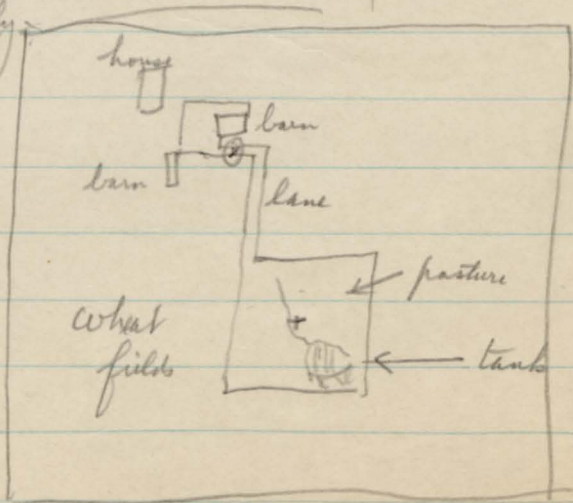 house
barn
barn
lane
pasture
Wheat
fields
tank